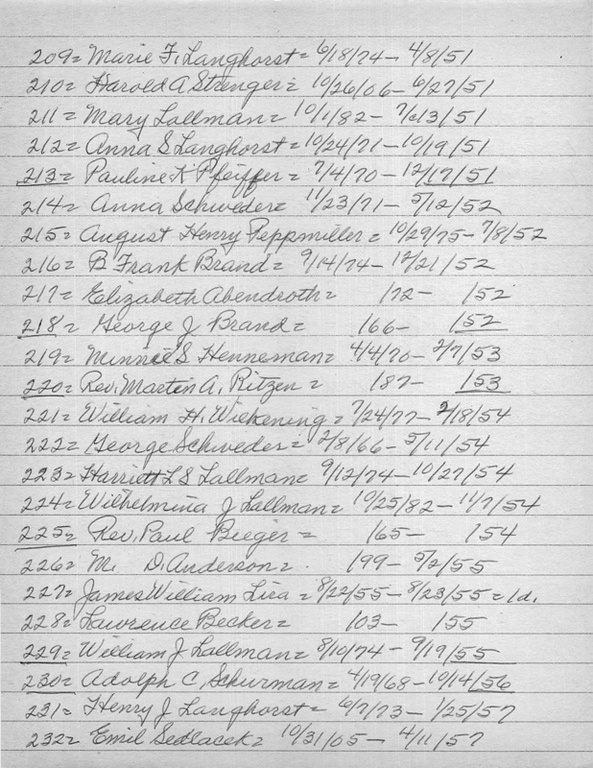 209= Marie F. Langhorst = 6/18/74 - 4/8/51
210= Harold A Strenger = 10/26/06 - 6/27/51
211= Mary Lallman = 10/1/82 - 7/13/51
212= Anna S Langhorst = 10/24/71 - 10/19/51
213= Pauline K Pfeiffer = 7/4/70 - 12/17/51
214= Anna Schweder = 11/23/71 - 5/12/52
215= August Henry Peppmiller = 10/29/75 - 7/8/52
216= B Frank Brand = 9/14/74 - 12/21/52
217= Elizabeth Abendroth = /72 - /52
218= George J Brand = /66 - /52
219= Minnie S Henneman = 4/4/70 - 2/7/53
220= Rev. Martin A. Ritzen = /87 - /53
221= William H. Wiekening = 7/24/77 - 2/18/54
222= George Schweder = 2/8/66 - 5/11/54
223= Harriett L S Lallman = 9/12/74 - 10/27/54
224= Wilhelmina J Lallman = 10/25/82 - 11/7/54
225= Rev. Paul Bieger = /65 - /54
226= M. D. Anderson = /99 - 5/2/55
227= James William Lira = 8/22/55 - 8/23/55 = 1d.
228= Lawrence Becker = /03 - /55
229= William J Lallman = 8/10/74 - 9/19/55
230= Adolph C. Schurman = 4/19/68 - 10/14/56
231= Henry J Langhorst = 6/7/73 - 1/25/57
232= Emil Sedlacek = 10/31/05 - 4/11/57